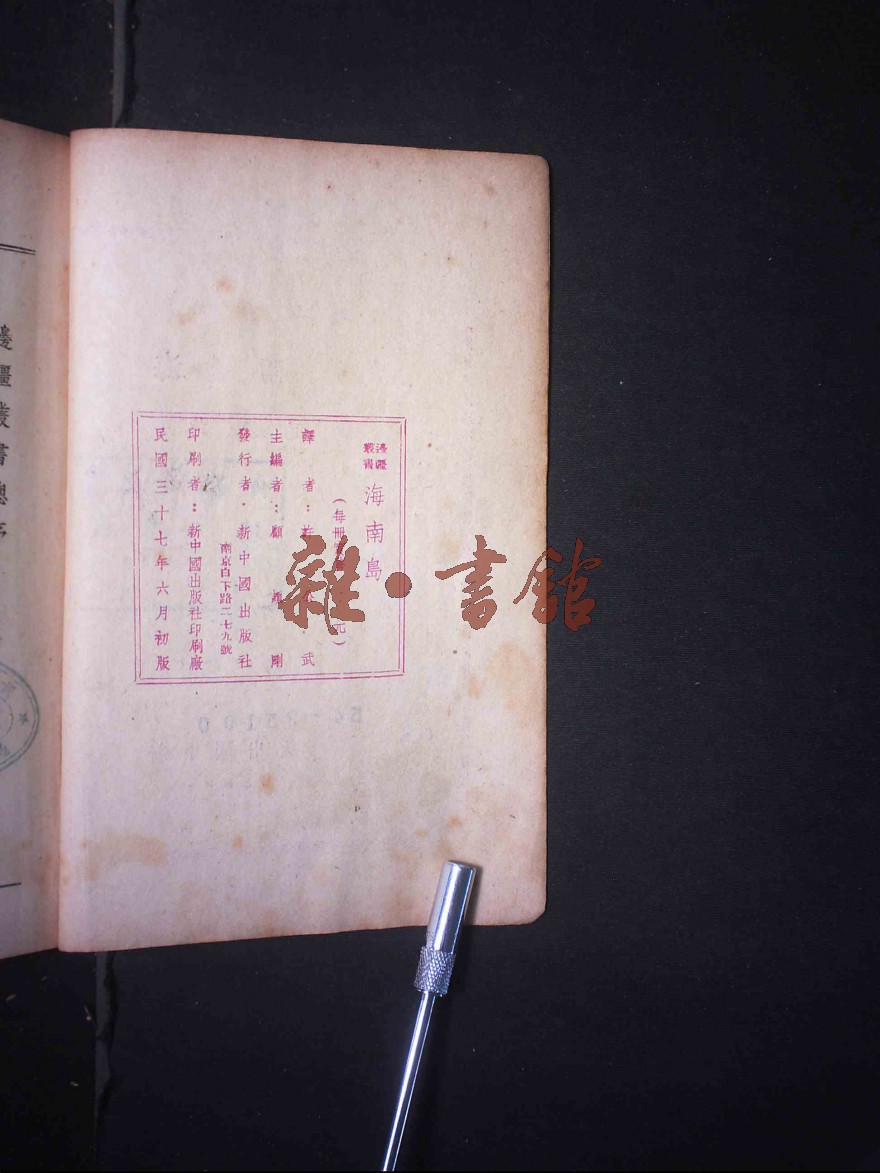 邊疆叢書
海南島
(每冊 元)
譯者: 武
主編者:顧 剛
發行者·新中國出版社
南京白下路二七九號
印刷者:新中國出版社印刷廠
民國三十七年六月初版
雜·書館
邊疆叢書總序